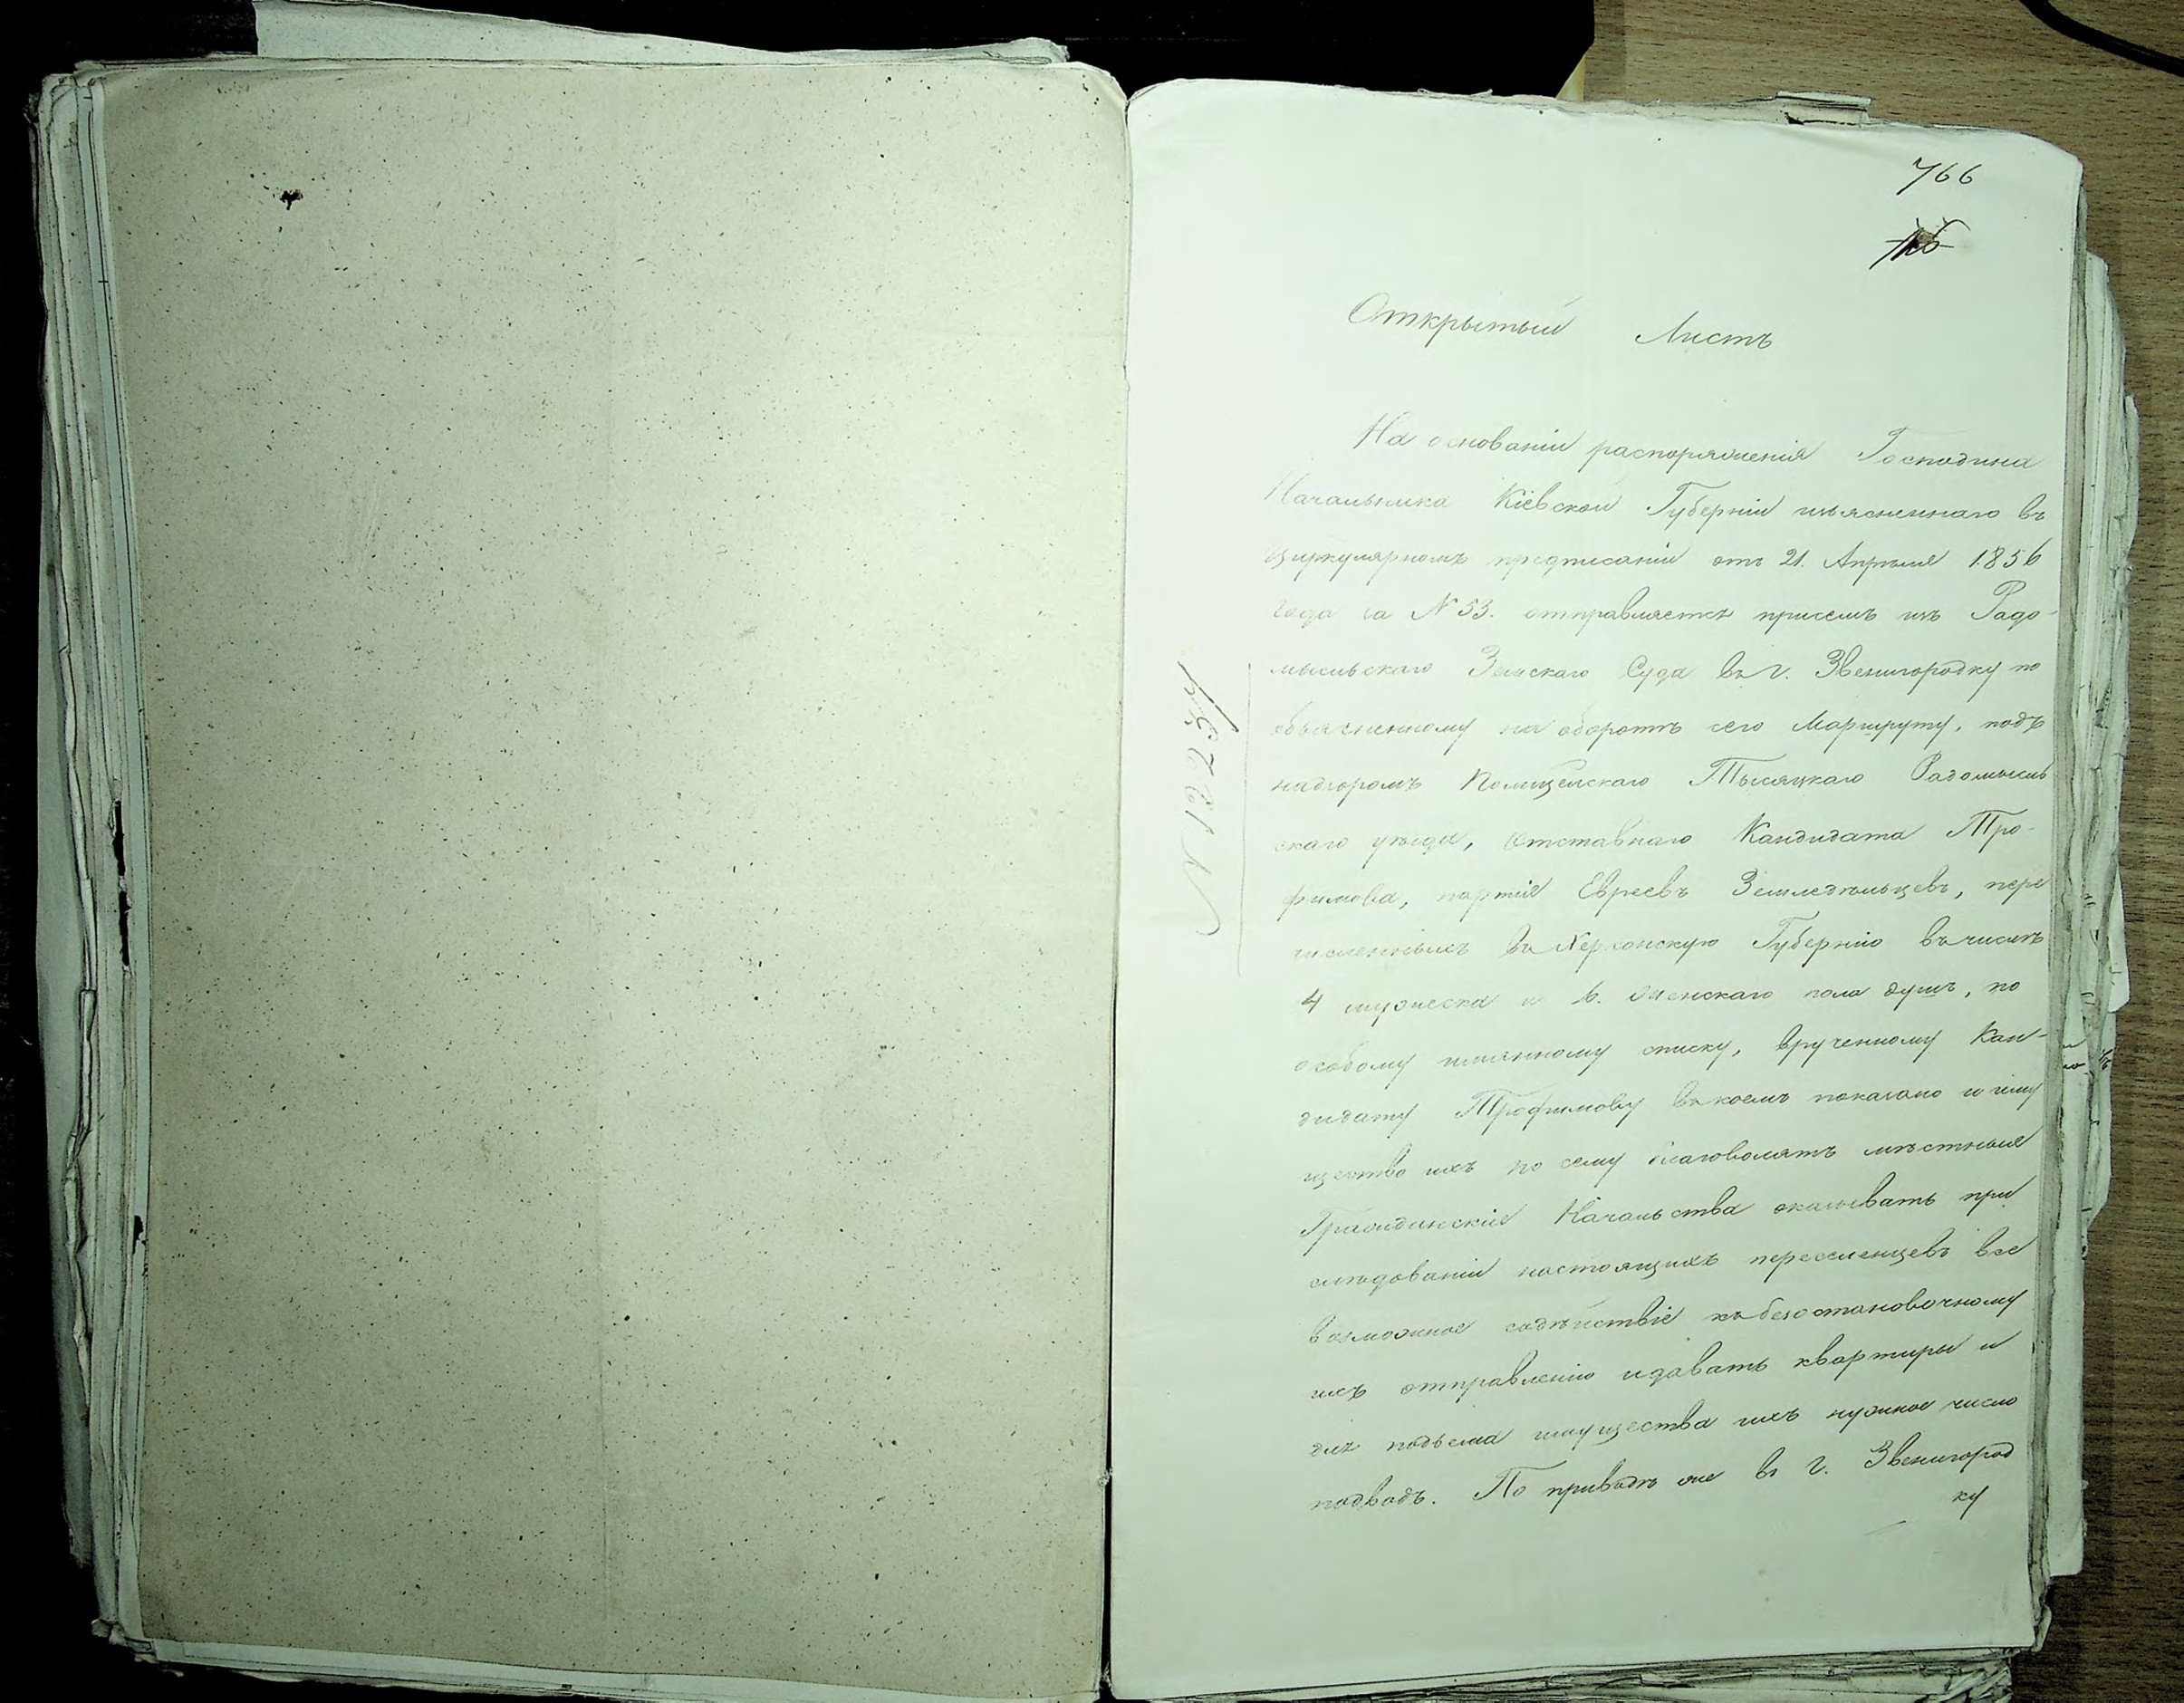 766
Открытый Листъ
На основаніи распоряженія Господина
Начальника Кіевской Губерніи изъясненнаго въ
Циркулярномъ предписаніи отъ 21. Апрѣля 1856
года за № 53. отправляется присемъ изъ Радо-
мысльскаго Земскаго Суда въ г. Звенигородку по
объясненному на оборотѣ сего Маршруту, подъ
надзоромъ Полицейскаго Тысяцкаго Радомысль
скаго уѣзда, Отставнаго Кандидата Тро-
фимова, партія Евреевъ Земледѣльцевъ, пере
численныхъ въ Херсонскую Губернію въ числѣ
4 мужеска и 6. женскаго пола душъ, по
особому имянному списку, врученному Кан-
дидату Трофимову въ коемъ показано и иму
щество ихъ по сему благоволятъ мѣстныя
Гражданскія Начальства оказывать при
слѣдованіи настоящихъ переселенцевъ все
возможное содѣйствіе къ безостановочному
ихъ отправленію и давать квартиры и
для подъема имущества ихъ нужное число
подводъ. По приводѣ же въ г. Звенигород
ку